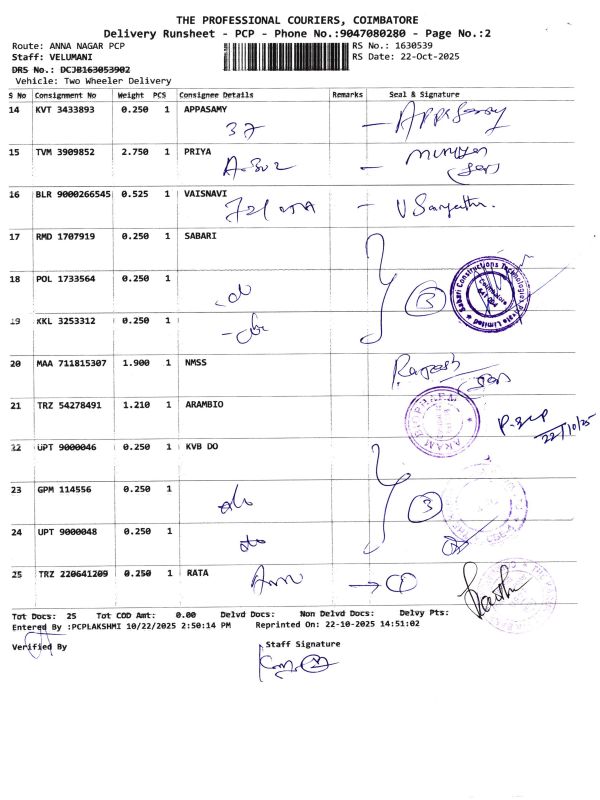 THE PROFESSIONAL COURIERS, COIMBATORE
Delivery Runsheet - PCP - Phone No.:9047080280 - Page No.:2
Route: ANNA NAGAR PCP RS No.: 1630539
Staff: VELUMANI RS Date: 22-Oct-2025
DRS No.: DCJB163053902
Vehicle: Two Wheeler Delivery
S No Consignment No Weight PCS Consignee Details Remarks Seal & Signature
14 KVT 3433893 0.250 1 APPASAMY
37 Appasamy
15 TVM 3909852 2.750 1 PRIYA
A-302
16 BLR 9000266545 0.525 1 VAISNAVI
17 RMD 1707919 0.250 1 SABARI
18 POL 1733564 0.250 1
do 3
19 KKL 3253312 0.250 1
do
20 MAA 711815307 1.900 1 NMSS
21 TRZ 54278491 1.210 1 ARAMBIO
22/10/25
22 UPT 9000046 0.250 1 KVB DO
23 GPM 114556 0.250 1
do 3
24 UPT 9000048 0.250 1
do
25 TRZ 220641209 0.250 1 RATA
1
Tot Docs: 25 Tot COD Amt: 0.00 Delvd Docs: Non Delvd Docs: Delvy Pts:
Entered By :PCPLAKSHMI 10/22/2025 2:50:14 PM Reprinted On: 22-10-2025 14:51:02
Verified By Staff Signature